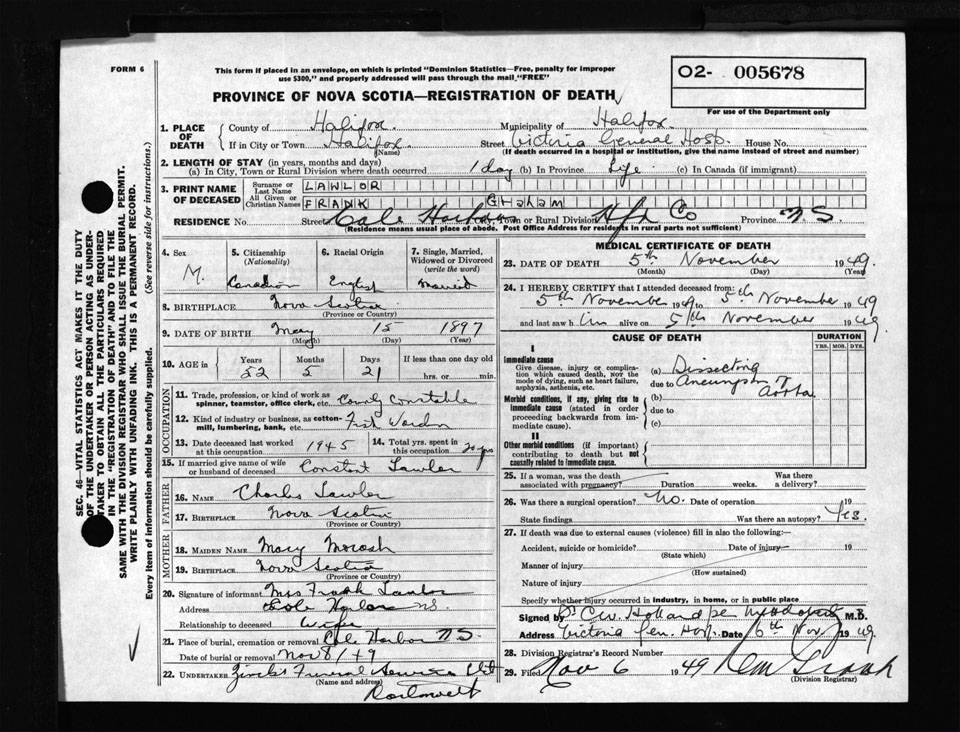 FORM 6
This form if placed in an envelope, on which is printed "Dominion Statistics—Free, penalty for improper
use $300," and properly addressed will pass through the mail "FREE"
O2- 005678
PROVINCE OF NOVA SCOTIA—REGISTRATION OF DEATH
For use of the Department only
1. PLACE OF DEATH
County of Halifax. Municipality of Halifax.
If in City or Town Halifax (Name) Street Victoria General Hosp. House No.
(If death occurred in a hospital or institution, give the name instead of street and number)
2. LENGTH OF STAY (in years, months and days)
(a) In City, Town or Rural Division where death occurred 1 day (b) In Province Life (c) In Canada (if immigrant)
3. PRINT NAME OF DECEASED
Surname or Last Name LAWLOR
All Given or Christian Names FRANK Graham
RESIDENCE No. Street Cole Harbour City, Town or Rural Division Hfx Co Province N S
(Residence means usual place of abode. Post Office Address for residents in rural parts not sufficient)
4. Sex M.
5. Citizenship (Nationality) Canadian
6. Racial Origin English
7. Single, Married, Widowed or Divorced (write the word) Married
8. BIRTHPLACE Nova Scotia
(Province or Country)
9. DATE OF BIRTH May 15 1897
(Month) (Day) (Year)
10. AGE in Years Months Days If less than one day old
52 5 21 hrs. or min.
OCCUPATION
11. Trade, profession, or kind of work as spinner, teamster, office clerk, etc. County Constable
12. Kind of industry or business, as cotton-mill, lumbering, bank, etc. Fish Warden
13. Date deceased last worked at this occupation 1945
14. Total yrs. spent in this occupation 20 yrs
15. If married give name of wife or husband of deceased Constant Lawlor
FATHER
16. NAME Charles Lawlor
17. BIRTHPLACE Nova Scotia
(Province or Country)
MOTHER
18. MAIDEN NAME Mary
19. BIRTHPLACE Nova Scotia
(Province or Country)
20. Signature of informant Mrs Frank Lawlor
Address Cole Harbor N.S.
Relationship to deceased Wife
21. Place of burial, cremation or removal Cole Harbor N S.
Date of burial or removal Nov 8/49
22. UNDERTAKER Funeral Service
(Name and address)
MEDICAL CERTIFICATE OF DEATH
23. DATE OF DEATH 5th November 1949.
(Month) (Day) (Year)
24. I HEREBY CERTIFY that I attended deceased from:
5th November 1949 to 5th November 1949
and last saw him alive on 5th November 1949.
CAUSE OF DEATH
DURATION
YRS. MOS. DYS.
I
Immediate cause
Give disease, injury or complication which caused death, NOT the mode of dying, such as heart failure, asphyxia, asthenia, etc.
(a) Dissecting
due to Aneurysm Aorta
Morbid conditions, if any, giving rise to immediate cause (stated in order proceeding backwards from immediate cause).
(b)
due to
(c)
II
Other morbid conditions (if important) contributing to death but not causally related to immediate cause.
25. If a woman, was the death associated with pregnancy? Duration weeks. Was there a delivery?
26. Was there a surgical operation? No. Date of operation 19
State findings Was there an autopsy? Yes.
27. If death was due to external causes (violence) fill in also the following:—
Accident, suicide or homicide? Date of injury 19
(State which)
Manner of injury
(How sustained)
Nature of injury
Specify whether injury occurred in industry, in home, or in public place
Signed by Dr C.W. Holland M.D.
Address Victoria Gen. Hosp. Date 6th Nov 1949
28. Division Registrar's Record Number
29. Filed Nov 6 1949
(Division Registrar)
SEC. 46—VITAL STATISTICS ACT MAKES IT THE DUTY
OF THE UNDERTAKER OR PERSON ACTING AS UNDER-
TAKER TO OBTAIN ALL THE PARTICULARS REQUIRED
IN THE "REGISTRATION OF DEATH" AND TO FILE THE
SAME WITH THE DIVISION REGISTRAR WHO SHALL ISSUE THE BURIAL PERMIT.
WRITE PLAINLY WITH UNFADING INK. THIS IS A PERMANENT RECORD.
Every item of information should be carefully supplied. (See reverse side for instructions.)